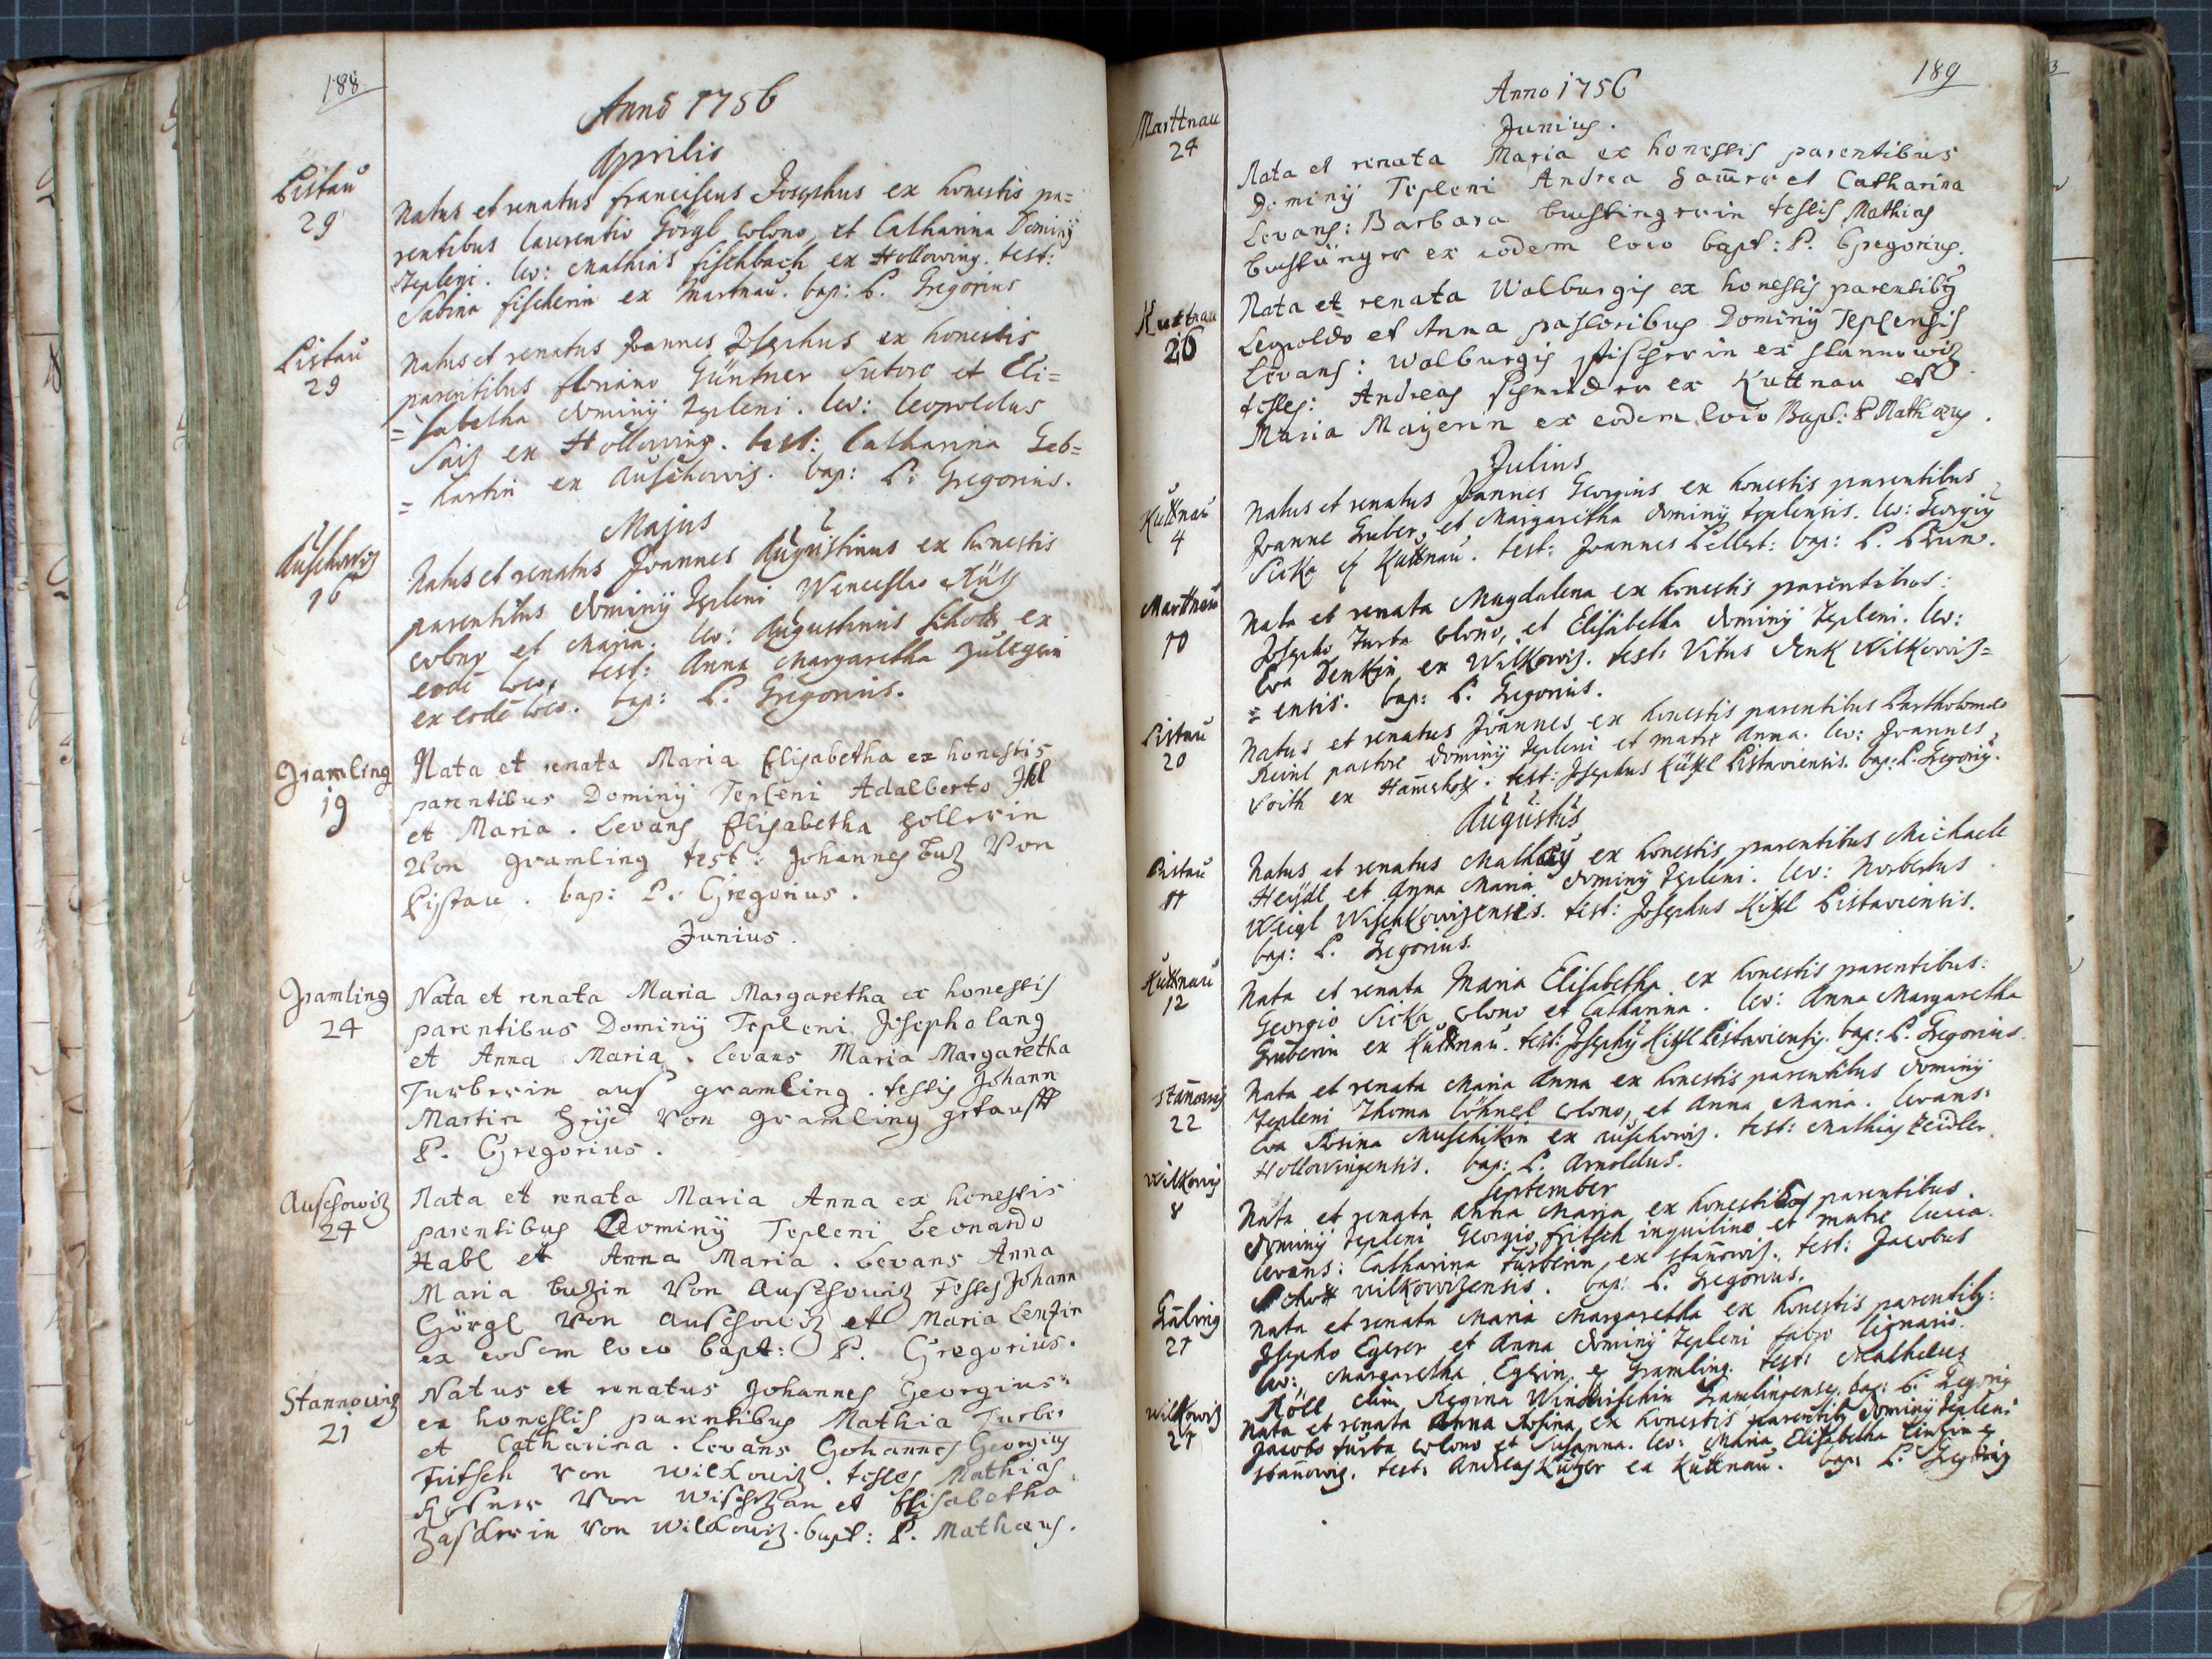 188.
Anno 1756
Aprilis
Pistau
29
Natus et renatus Franciscus Josephus ex honestis pa=
rentibus Laurentio Görgl colono, et Catharina Dominÿ
Tepleni. lev: Mathias Fischbach ex Hollowing. test:
Sabina Fischerin ex Martnau. bap: P. Gregorius
Pistau
29
Natus et renatus Joannes Josephus ex honestis
parentibus Floriano Güntner Sutore et Eli=
=sabetha dominÿ Tepleni. lev: Leopoldus
ex Hollowing. test: Catharina Geb=
=hartin ex Auschowis. bap: P: Gregorius.
Majus
Auschowis
16
Natus et renatus Joannes Augustinus ex honestis
parentibus dominÿ Tepleni Wenceslao
colono et Maria. lev: Augustinus Schott ex
eodē loco, test: Anna Margaretha Zülegerin
ex eodē loco. bap: P. Gregorius.
Gramling
19
Nata et renata Maria Elisabetha ex honestis
parentibus Dominÿ Tepleni Adalberto
et Maria. Levans Elisabetha Hollerin
Von gramling test: Johannes Von
Pistau. bap: P. Gregorius.
Junius.
Gramling
24
Nata et renata Maria Margaretha ex honestis
parentibus Dominÿ Tepleni Josepho lang
et Anna Maria. Levans Maria Margaretha
Turberin aus gramling. testis Johann
Martin Von gramling getaufft
P. Gregorius.
Auschowiz
24
Nata et renata Maria Anna ex honestis
parentibus Dominÿ Tepleni Leonardo
Habl et Anna Maria. Levans Anna
Maria buzin Von Auschowiz Testes Johann
Görgl Von Auschowiz et Maria Lenzin
ex eodem loco bapt: P. Gregorius.
Stannowiz
21
Natus et renatus Johannes Georgius
ex honestis parentibus Mathia Turber
et Catharina. Levans Johannes Georgius
Fritsch Von Wilkowiz. testes Mathias
Von Wischezan et Elisabetha
Von Wilkowiz. bapt: P. Mathæus.
189
Anno 1756
Junius.
Marttnau
24
Nata et renata Maria ex honestis parentibus
Dominÿ Tepleni Andrea et Catharina
Levans: Barbara testis Mathias
ex eodem loco bapt: P. Gregorius.
Kuttnau
26
Nata et renata Walburgis ex honestis parentibus
Leopoldo et Anna pastoribus Dominÿ Teplensis
Levans: Walburgis Fischerin ex stannowiz
testes: Andreas Schneider ex Kuttnau et
Maria Mayerin ex eodem loco Bapt: P Mathæus.
Julius
Kuttnau
4
Natus et renatus Joannes Georgius ex honestis parentibus
Joanne Gruber, et Margaretha dominÿ teplensis. lev: Georgiÿ
Sicka Kuttnau. test: Joannes bap: P. Bruno.
Martnau
10
Nata et renata Magdalena ex honestis parentibus:
Josepho Turba colono, et Elisabetha dominÿ Tepleni. lev:
Eva Denkin ex Wilkowis. test: Vitus Denk Wilkowis=
=ensis. bap: P. Gregorius.
Pistau
20
Natus et renatus Joannes ex honestis parentibus Bartholomæo
Reinl pastore dominÿ Tepleni et matre Anna. lev: Joannes
Voith ex test: Josephus Pistaviensis. bap: P. Gregoriÿ.
Augustus
Pistau
11
Natus et renatus ex honestis parentibus Michaele
Heÿdl et Anna Maria dominÿ Tepleni. lev: Norbertus
Weigl Wischkowizensis. test: Josephus Pistaviensis.
bap: P. Gregorius.
Kuttnau
12
Nata et renata Maria Elisabetha ex honestis parentibus:
Georgio Sicka colono et Catharina. lev: Anna Margaretha
Gruberin ex Kuttnau. test: Josephÿ Pistaviensis. bap: P. Gregorius.
Stañowis
22
Nata et renata Maria Anna ex honestis parentibus dominÿ
Tepleni Thoma Löhnerl colono, et Anna Maria. levans:
Eva Rosina Muschikin ex Auschowis. test: Mathias Zeidler
Hollowingensis. bap: P. Arnoldus.
September
Wilkowis
8
Nata et renata Anna Maria ex honestis parentibus
dominÿ Tepleni Georgio Fritsch inquilino et matre Lucia.
levans: Catharina Turberin ex stañowis. test: Jacobus
Schott wilkowizensis. bap: P. Gregorius.
Gāling
27
Nata et renata Maria Margaretha ex honestis parentibÿ:
Josepho Egerer et Anna dominÿ Tepleni fabro lignario.
lev: Margaretha Gramling. test: Mathæus
Röll cum Regina Windrischin Gramlingenses. bap: P. Gregoriÿ
Wilkowiz
27
Nata et renata Anna Rosina ex honestis parentibÿ dominÿ Tepleni
Jacobo turba colono et Susanna. lev: Maria Elisabetha
stañowiz. test: Andreas ex Kuttnau. bap: P. Gregoriÿ